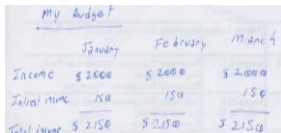 My Budget
January February March
Income $2000 $2000 $2000
Intrest inume 150 150 150
Total inume $2150 $2150 $2150